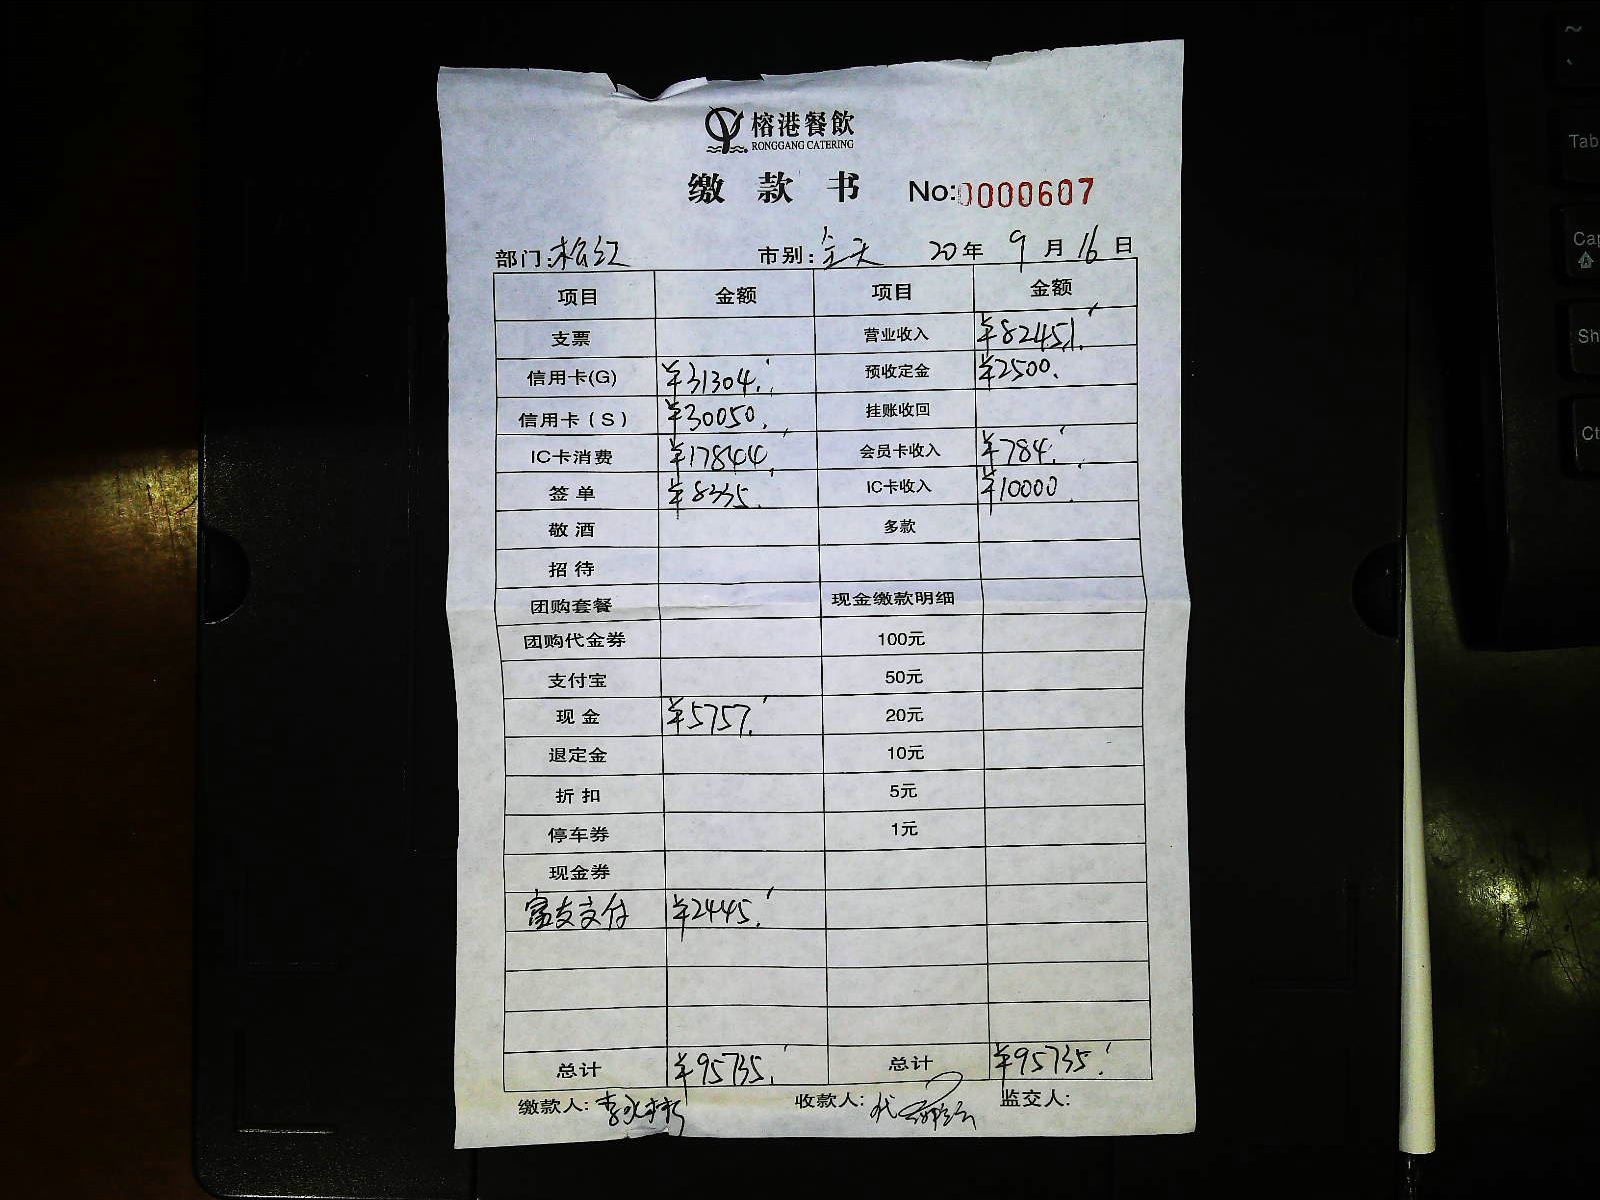 榕港餐飲
RONGGANG CATERING
缴款书 No:0000607
部门:松江 市别:全天 20年 9月 16日
项目 金额 项目 金额
支票 营业收入 ¥82451.
信用卡(G) ¥31304. 预收定金 ¥2500.
信用卡(S) ¥30050. 挂账收回
IC卡消费 ¥17844. 会员卡收入 ¥784.
签单 ¥8335. IC卡收入 ¥10000.
敬酒 多款
招待
团购套餐 现金缴款明细
团购代金券 100元
支付宝 50元
现金 ¥5757. 20元
退定金 10元
折扣 5元
停车券 1元
现金券
富友支付 ¥2445.
总计 ¥95735. 总计 ¥95735.
缴款人: 收款人:代 监交人:
~
Tab
Cap
Sh
Ct